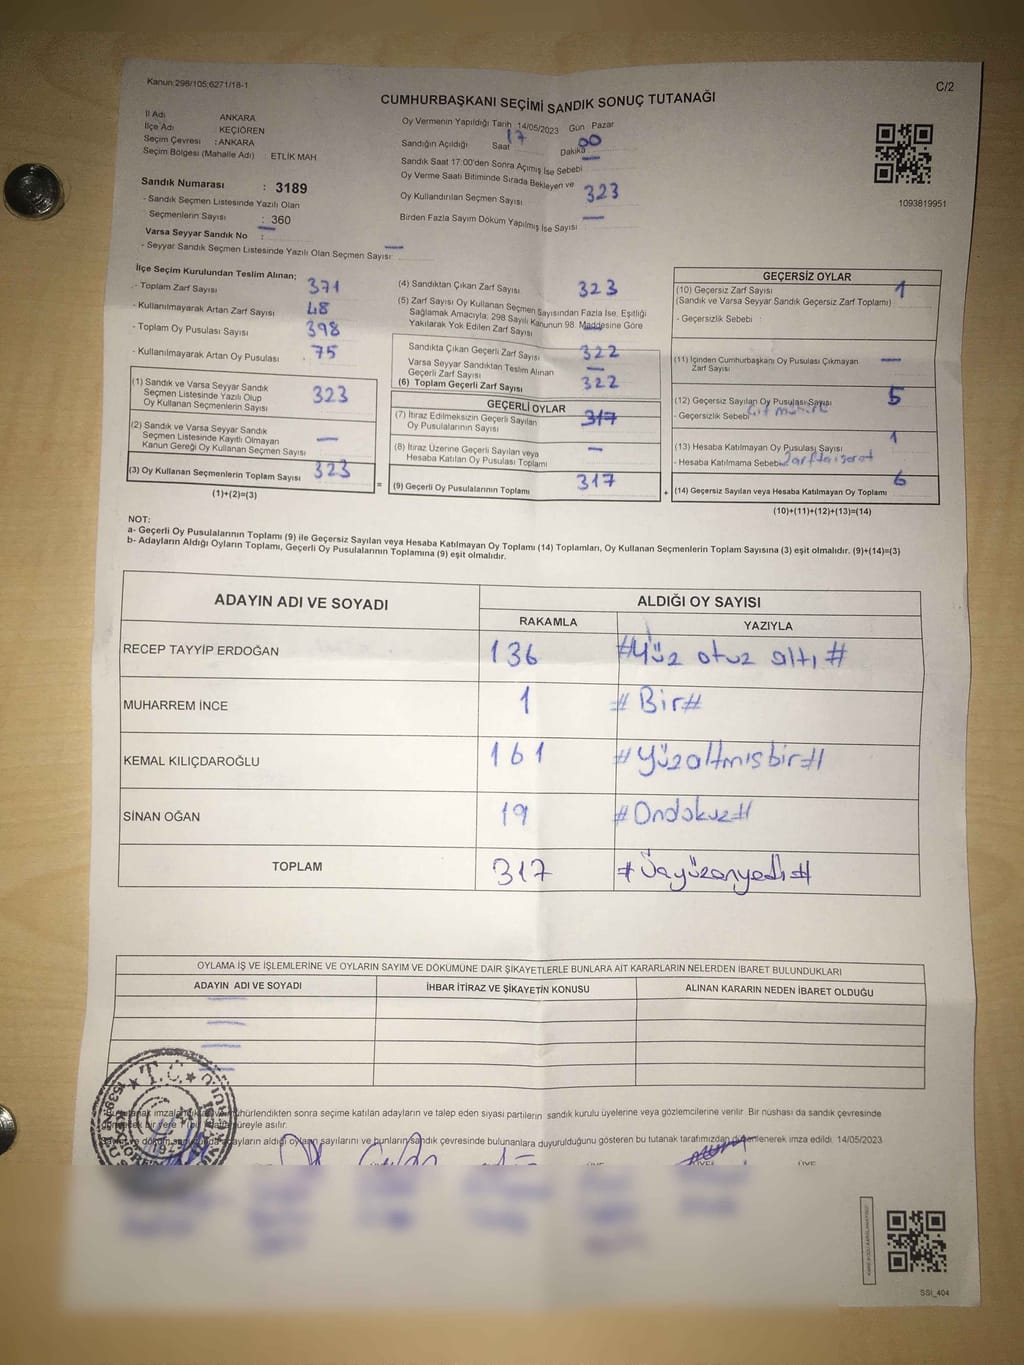 Kanun:298/105;6271/18-1
C/2
CUMHURBAŞKANI SEÇİMİ SANDIK SONUÇ TUTANAĞI
İl Adı ANKARA
İlçe Adı KEÇİÖREN
Seçim Çevresi : ANKARA
Seçim Bölgesi (Mahalle Adı) : ETLİK MAH.
Sandık Numarası : 3189
- Sandık Seçmen Listesinde Yazılı Olan
Seçmenlerin Sayısı : 360
Varsa Seyyar Sandık No : —
- Seyyar Sandık Seçmen Listesinde Yazılı Olan Seçmen Sayısı: —
Oy Vermenin Yapıldığı Tarih 14/05/2023 Gün Pazar
Sandığın Açıldığı Saat 17 Dakika 00
Sandık Saat 17:00'den Sonra Açılmış İse Sebebi —
Oy Verme Saati Bitiminde Sırada Bekleyen ve
Oy Kullandırılan Seçmen Sayısı 323
Birden Fazla Sayım Döküm Yapılmış İse Sayısı —
1093819951
İlçe Seçim Kurulundan Teslim Alınan;
- Toplam Zarf Sayısı 371
- Kullanılmayarak Artan Zarf Sayısı 48
- Toplam Oy Pusulası Sayısı 398
- Kullanılmayarak Artan Oy Pusulası 75
(1) Sandık ve Varsa Seyyar Sandık
Seçmen Listesinde Yazılı Olup
Oy Kullanan Seçmenlerin Sayısı 323
(2) Sandık ve Varsa Seyyar Sandık
Seçmen Listesinde Kayıtlı Olmayan
Kanun Gereği Oy Kullanan Seçmen Sayısı —
(3) Oy Kullanan Seçmenlerin Toplam Sayısı 323
(1)+(2)=(3)
=
(4) Sandıktan Çıkan Zarf Sayısı 323
(5) Zarf Sayısı Oy Kullanan Seçmen Sayısından Fazla İse, Eşitliği
Sağlamak Amacıyla; 298 Sayılı Kanunun 98. Maddesine Göre
Yakılarak Yok Edilen Zarf Sayısı —
Sandıkta Çıkan Geçerli Zarf Sayısı 322
Varsa Seyyar Sandıktan Teslim Alınan
Geçerli Zarf Sayısı —
(6) Toplam Geçerli Zarf Sayısı 322
GEÇERLİ OYLAR
(7) İtiraz Edilmeksizin Geçerli Sayılan
Oy Pusulalarının Sayısı 317
(8) İtiraz Üzerine Geçerli Sayılan veya
Hesaba Katılan Oy Pusulası Toplamı —
(9) Geçerli Oy Pusulalarının Toplamı 317
+
GEÇERSİZ OYLAR
(10) Geçersiz Zarf Sayısı 1
(Sandık ve Varsa Seyyar Sandık Geçersiz Zarf Toplamı)
- Geçersizlik Sebebi
(11) İçinden Cumhurbaşkanı Oy Pusulası Çıkmayan
Zarf Sayısı —
(12) Geçersiz Sayılan Oy Pusulası Sayısı 5
- Geçersizlik Sebebi Çift mühür
(13) Hesaba Katılmayan Oy Pusulası Sayısı 1
- Hesaba Katılmama Sebebi Zarfta işaret
(14) Geçersiz Sayılan veya Hesaba Katılmayan Oy Toplamı 6
(10)+(11)+(12)+(13)=(14)
NOT:
a- Geçerli Oy Pusulalarının Toplamı (9) ile Geçersiz Sayılan veya Hesaba Katılmayan Oy Toplamı (14) Toplamları, Oy Kullanan Seçmenlerin Toplam Sayısına (3) eşit olmalıdır. (9)+(14)=(3)
b- Adayların Aldığı Oyların Toplamı, Geçerli Oy Pusulalarının Toplamına (9) eşit olmalıdır.
ADAYIN ADI VE SOYADI ALDIĞI OY SAYISI
RAKAMLA YAZIYLA
RECEP TAYYİP ERDOĞAN 136 #Yüz otuz altı#
MUHARREM İNCE 1 #Bir#
KEMAL KILIÇDAROĞLU 161 #Yüzaltmışbir#
SİNAN OĞAN 19 #Ondokuz#
TOPLAM 317 #Üçyüzonyedi#
OYLAMA İŞ VE İŞLEMLERİNE VE OYLARIN SAYIM VE DÖKÜMÜNE DAİR ŞİKAYETLERLE BUNLARA AİT KARARLARIN NELERDEN İBARET BULUNDUKLARI
ADAYIN ADI VE SOYADI İHBAR İTİRAZ VE ŞİKAYETİN KONUSU ALINAN KARARIN NEDEN İBARET OLDUĞU
T.C.
mühürlendikten sonra seçime katılan adayların ve talep eden siyasi partilerin sandık kurulu üyelerine veya gözlemcilerine verilir. Bir nüshası da sandık çevresinde
süreyle asılır.
adayların aldığı oyların sayılarını ve bunların sandık çevresinde bulunanlara duyurulduğunu gösteren bu tutanak tarafımızdan düzenlenerek imza edildi. 14/05/2023
ÜYE
SSI_404